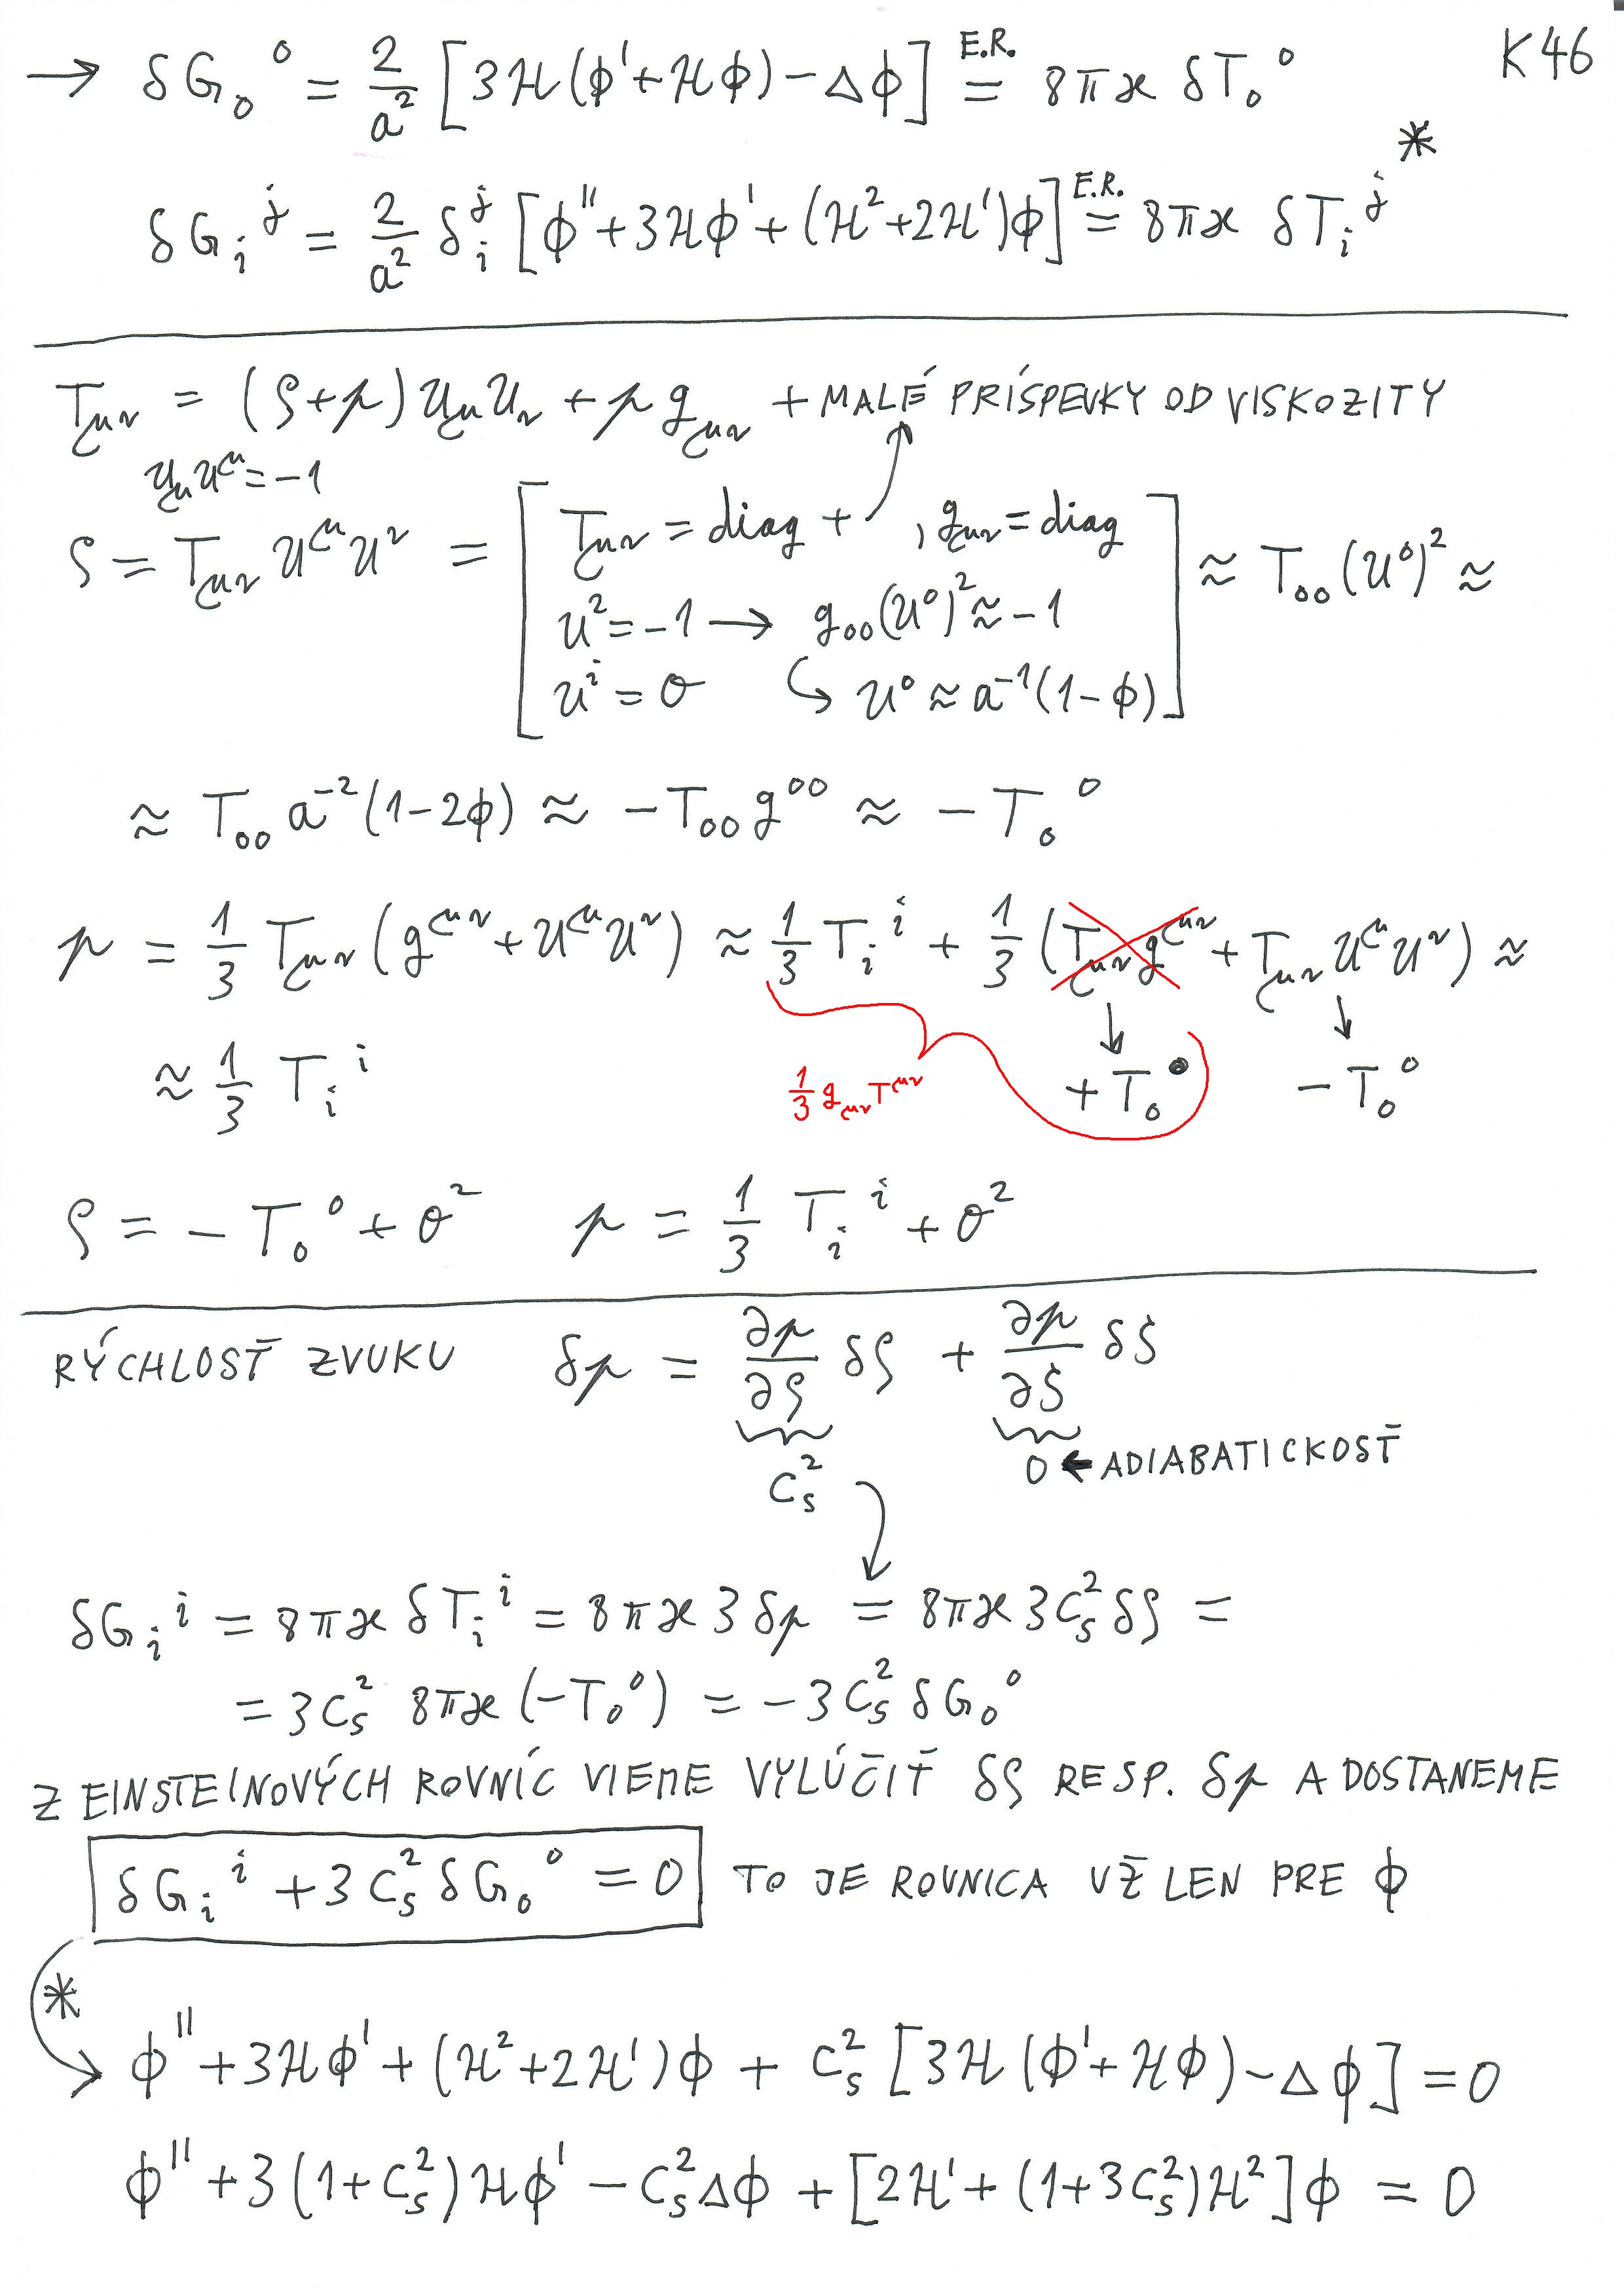 K46
→ δG₀⁰ = 2/a² [3ℋ(ϕ'+ℋϕ)−Δϕ] E.R.= 8πϰ δT₀⁰
δGᵢʲ = 2/a² δᵢʲ [ϕ''+3ℋϕ'+(ℋ²+2ℋ')ϕ] E.R.= 8πϰ δTᵢʲ *
T_μν = (ρ+p) u_μ u_ν + p g_μν + MALÉ PRÍSPEVKY OD VISKOZITY
u_μ u^μ = −1
ρ = T_μν u^μ u^ν = [ T_μν = diag + ↗ , g_μν = diag
u² = −1 → g₀₀(u⁰)² ≈ −1
uⁱ = 0 ↪ u⁰ ≈ a⁻¹(1−ϕ) ] ≈ T₀₀(u⁰)² ≈
≈ T₀₀ a⁻²(1−2ϕ) ≈ −T₀₀ g⁰⁰ ≈ −T₀⁰
p = 1/3 T_μν (g^μν + u^μ u^ν) ≈ 1/3 Tᵢⁱ + 1/3 (T_μν g^μν + T_μν u^μ u^ν) ≈
≈ 1/3 Tᵢⁱ 1/3 g_μν T^μν ↓ +T₀⁰ ↓ −T₀⁰
ρ = −T₀⁰ + σ² p = 1/3 Tᵢⁱ + σ²
RÝCHLOSŤ ZVUKU δp = ∂p/∂ρ δρ + ∂p/∂S δS
c_s² 0 ← ADIABATICKOSŤ
δGᵢⁱ = 8πϰ δTᵢⁱ = 8πϰ 3 δp = 8πϰ 3c_s² δρ =
= 3c_s² 8πϰ (−T₀⁰) = −3c_s² δG₀⁰
Z EINSTEINOVÝCH ROVNÍC VIEME VYLÚČIŤ δρ RESP. δp A DOSTANEME
δGᵢⁱ + 3c_s² δG₀⁰ = 0 TO JE ROVNICA UŽ LEN PRE ϕ
*
→ ϕ'' + 3ℋϕ' + (ℋ²+2ℋ')ϕ + c_s² [3ℋ(ϕ'+ℋϕ)−Δϕ] = 0
ϕ'' + 3(1+c_s²)ℋϕ' − c_s²Δϕ + [2ℋ' + (1+3c_s²)ℋ²]ϕ = 0